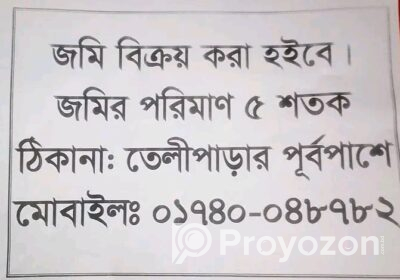 জমি বিক্রয় করা হইবে।
জমির পরিমাণ ৫ শতক
ঠিকানা: তেলীপাড়ার পূর্বপাশে
মোবাইলঃ ০১৭৪০-০৪৮৭৮২
Proyozon